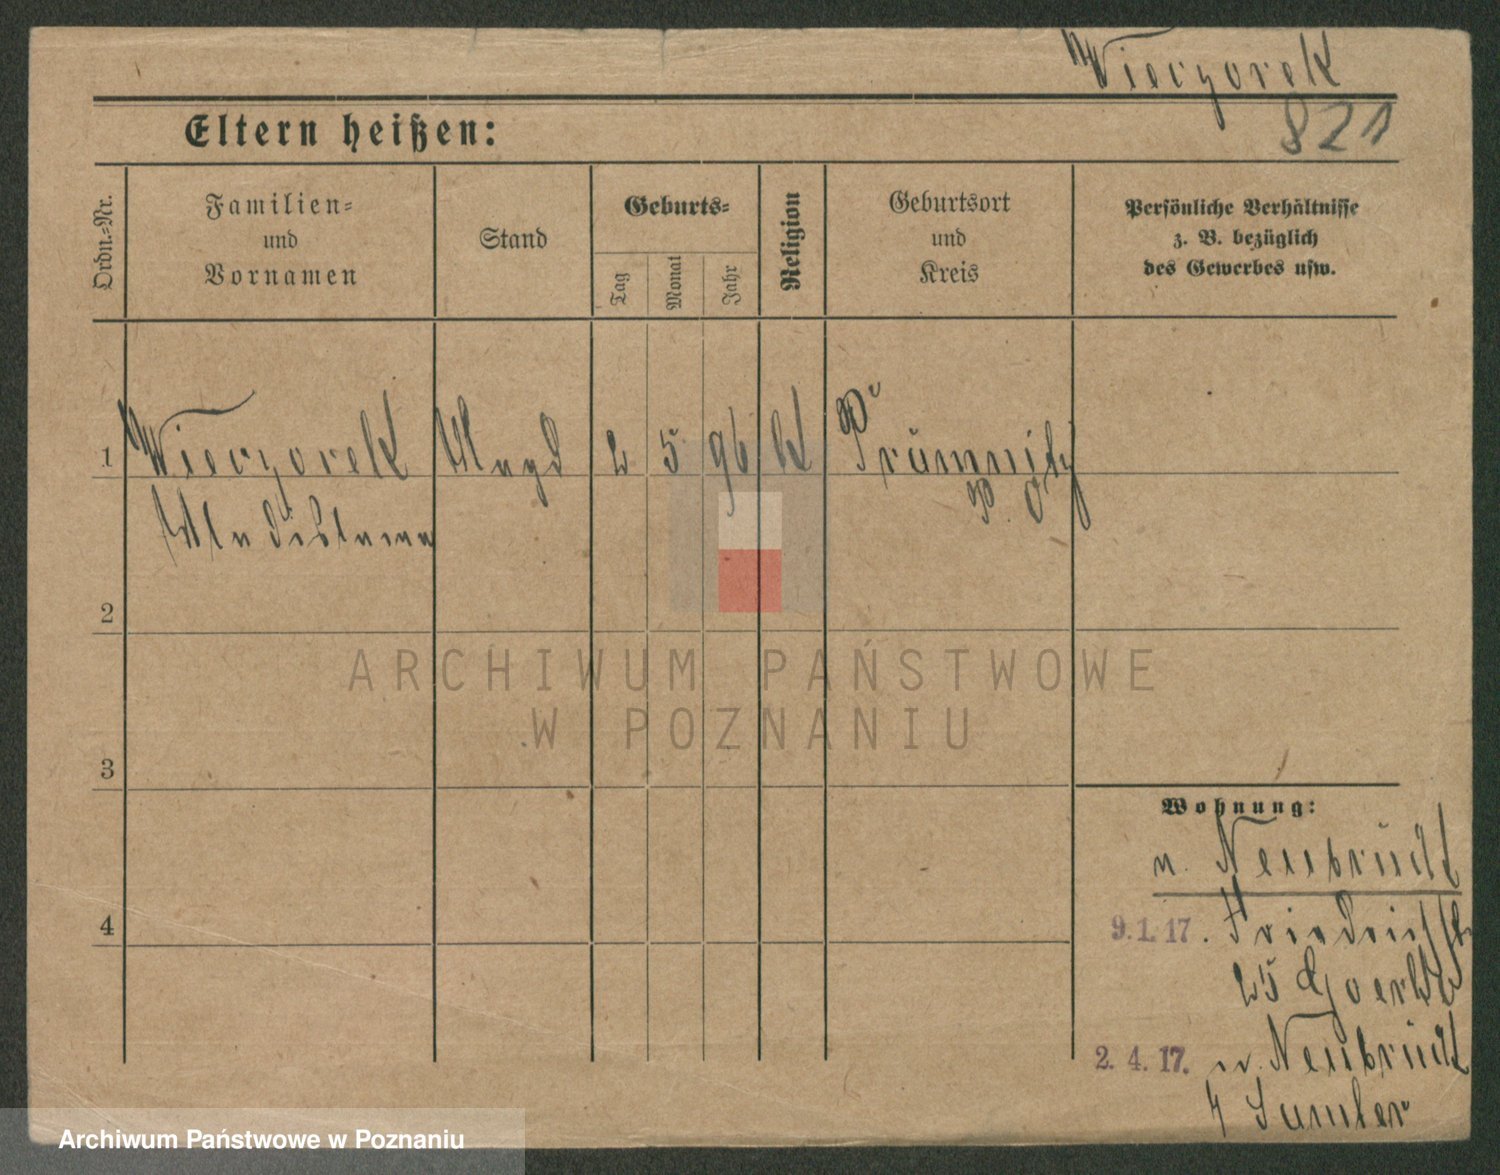 Wieczorek
821
Eltern heißen:
Ordn.-Nr.
Familien-
und
Vornamen
Stand
Geburts-
Tag
Monat
Jahr
Religion
Geburtsort
und
Kreis
Persönliche Verhältnisse
z. B. bezüglich
des Gewerbes usw.
1
Wieczorek Magd 2 5 96 K
Wladislawa
P. O.
2
3
4
Wohnung:
n. Neubrück
9.1.17. Friedrichstr
25
2.4.17. n. Neubrück
ARCHIWUM PAŃSTWOWE
W POZNANIU
Archiwum Państwowe w Poznaniu